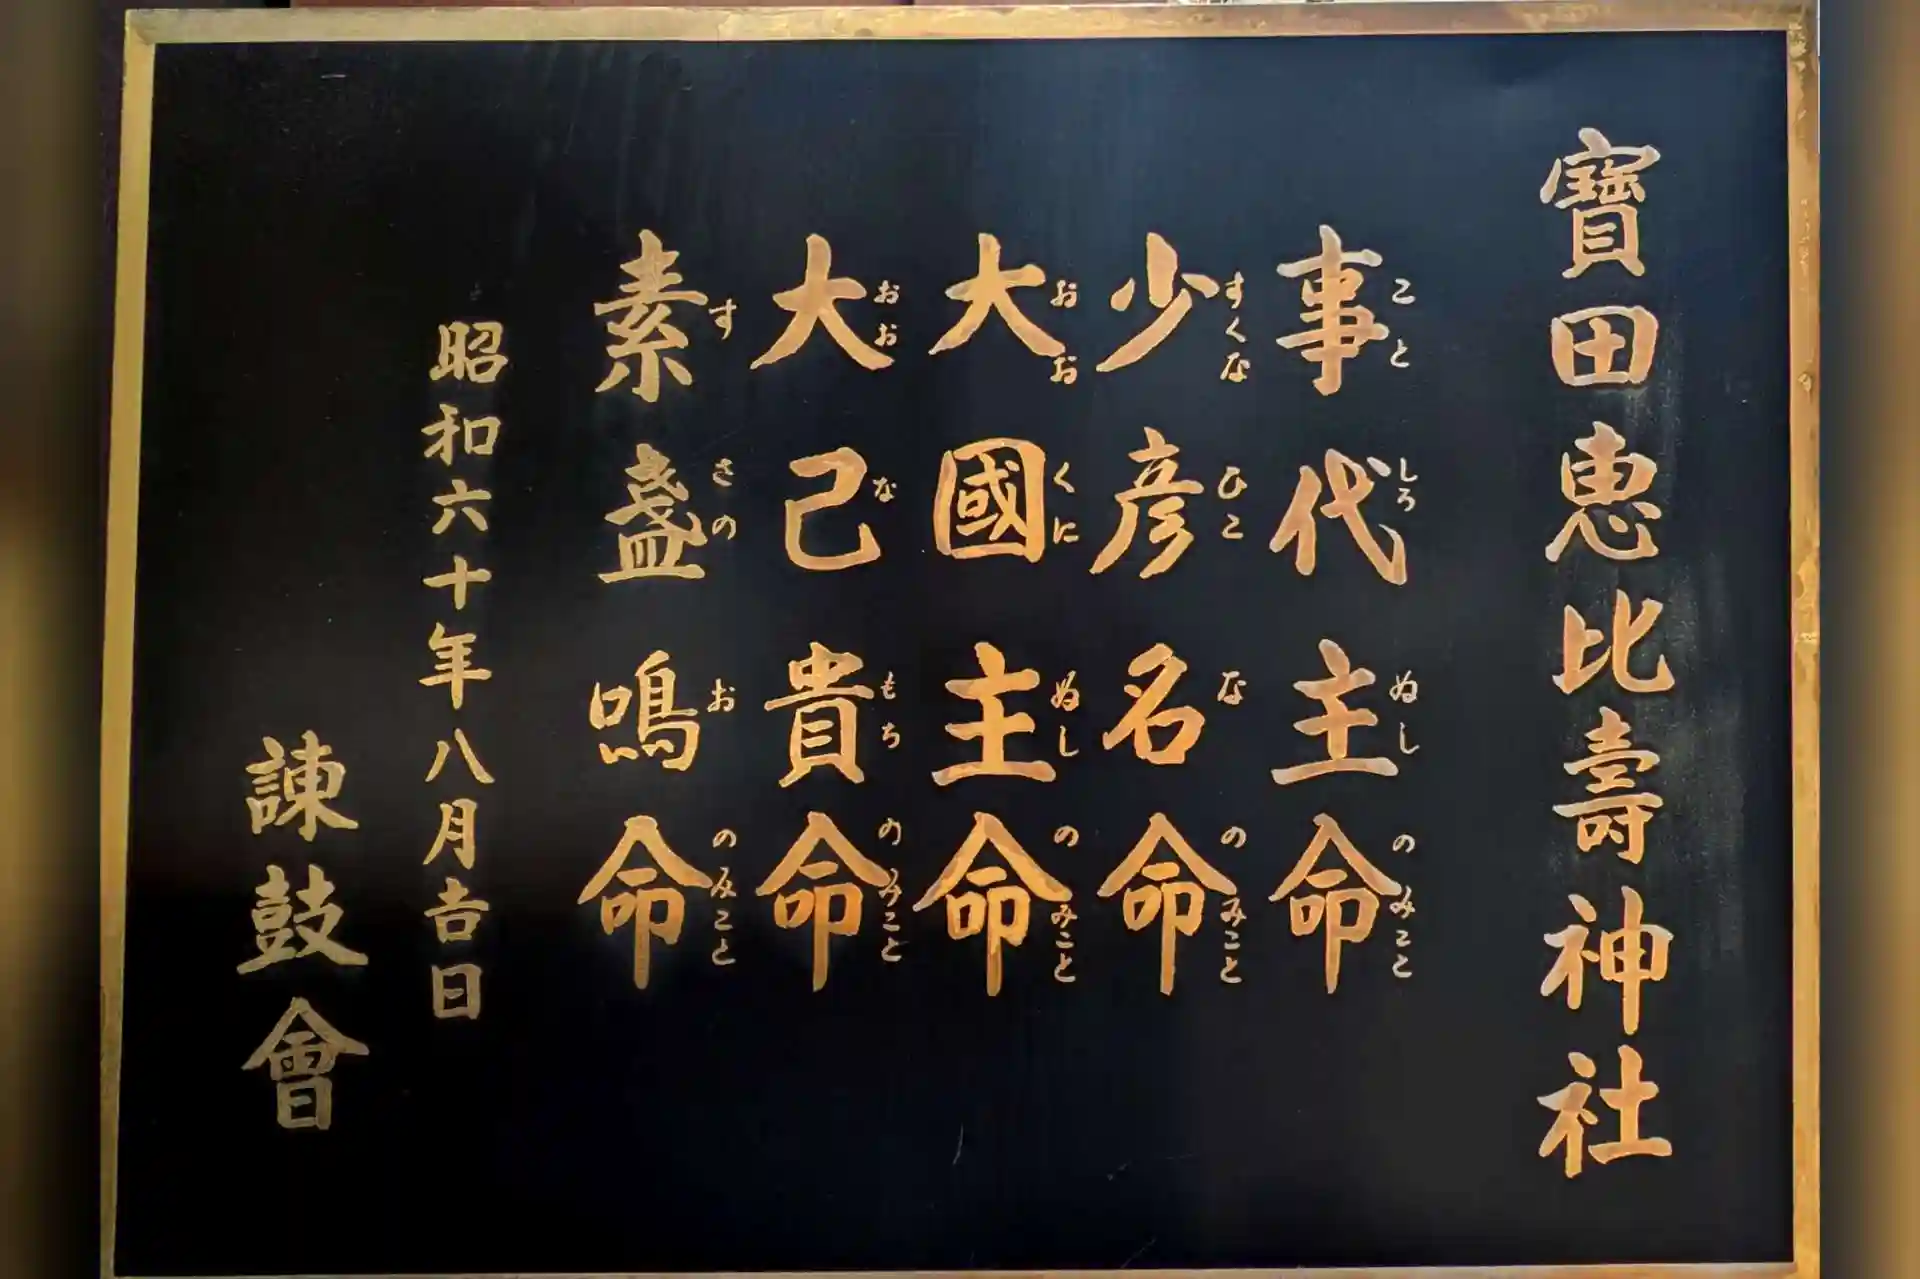 寶田恵比壽神社
事代主命
ことしろぬしのみこと
少彦名命
すくなひこなのみこと
大國主命
おおくにぬしのみこと
大己貴命
おおなもちのみこと
素盞鳴命
すさのおのみこと
昭和六十年八月吉日
諫鼓會